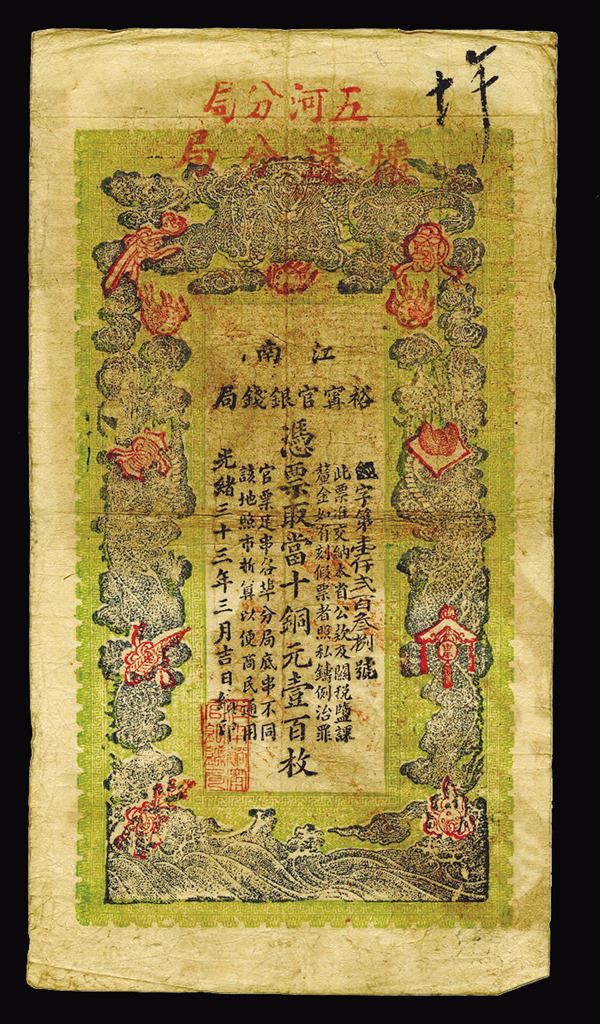 五河分局
懷遠分局
江南
裕甯官銀錢局
字第壹仟弍百叁捌號
此票准交納本省公款及關稅鹽課
釐金如有刻假票者照私鑄例治罪
憑票取當十銅元壹百枚
官票足串各埠分局底串不同
該地照市折算以便商民通用
光緒三十三年三月吉日